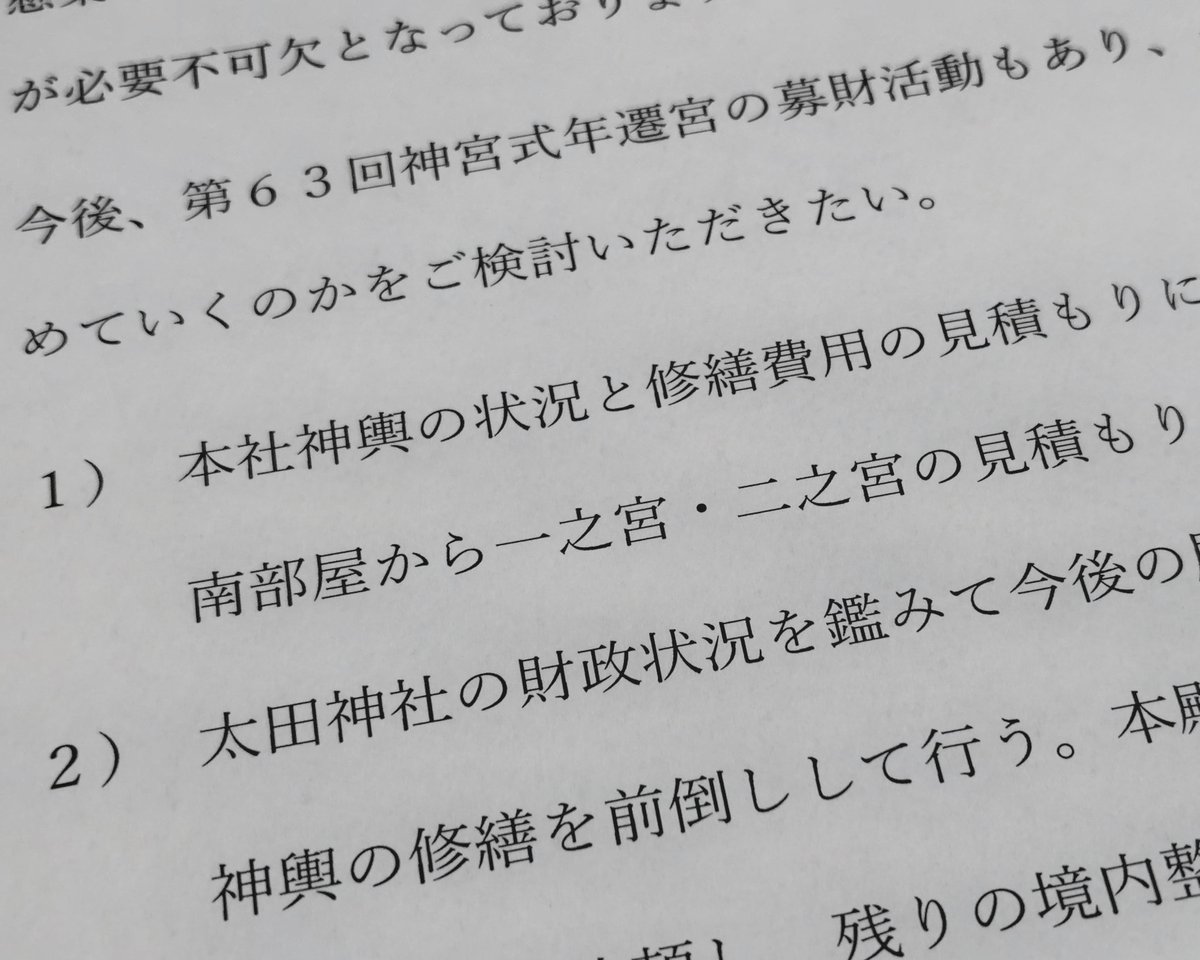 が必要不可欠となっており
今後、第６３回神宮式年遷宮の募財活動もあり、
めていくのかをご検討いただきたい。
１） 本社神輿の状況と修繕費用の見積もりに
南部屋から一之宮・二之宮の見積もり
２） 太田神社の財政状況を鑑みて今後の
神輿の修繕を前倒しして行う。本殿
残りの境内整